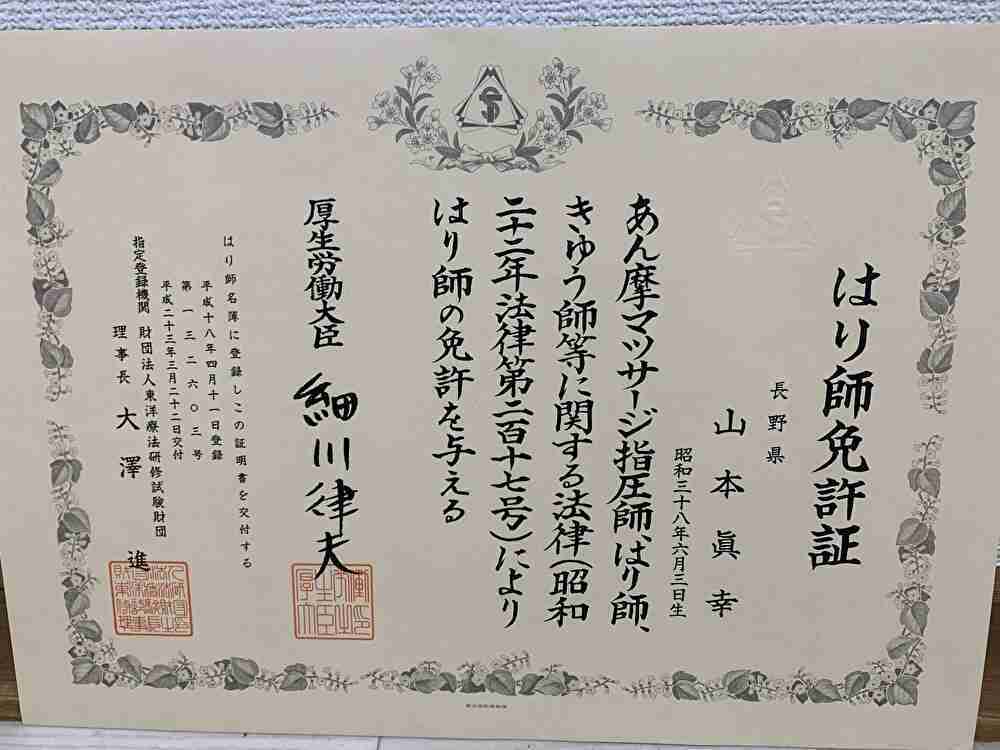 はり師免許証
長野県
山本眞幸
昭和三十八年六月三日生
あん摩マツサージ指圧師、はり師、
きゆう師等に関する法律(昭和
二十二年法律第二百十七号)により
はり師の免許を与える
厚生労働大臣 細川律夫
はり師名簿に登録しこの証明書を交付する
平成十八年四月十一日登録
第一三二六〇三号
平成二十三年三月二十二日交付
指定登録機関 財団法人東洋療法研修試験財団
理事長 大澤進